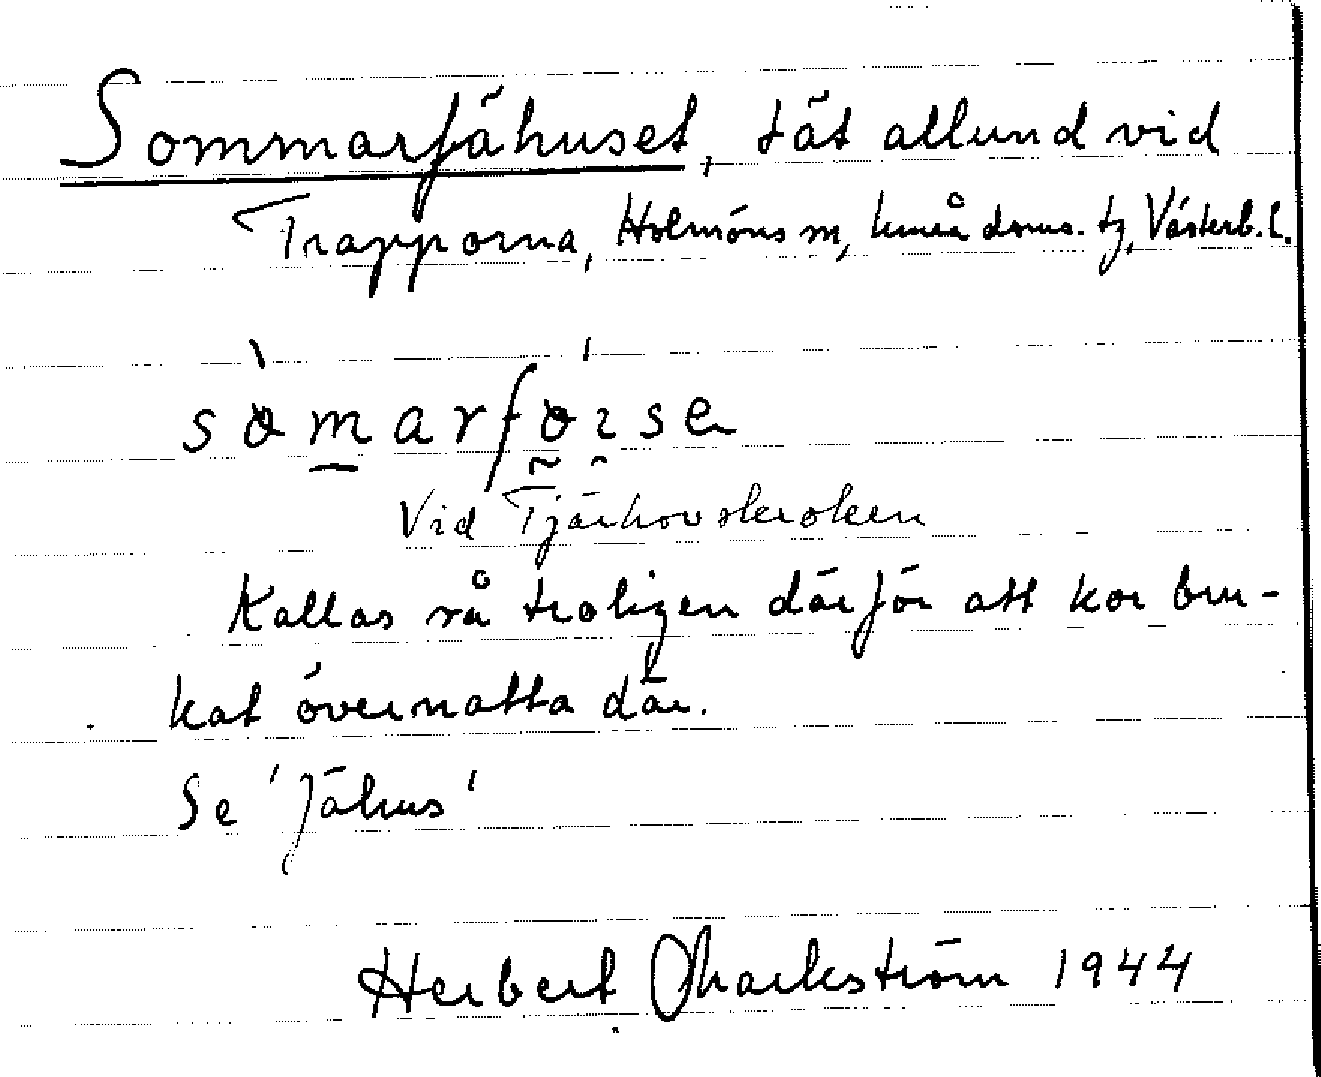 Sommarfähuset, tät allund vid
Trapporna, Holmöns sn, Umeå doms. tg, Västerb. l.
Vid Tjärhovskroken
Kallas så troligen därför att kor bru-
kat övernatta där.
Se 'fähus'
Herbert Markström 1944